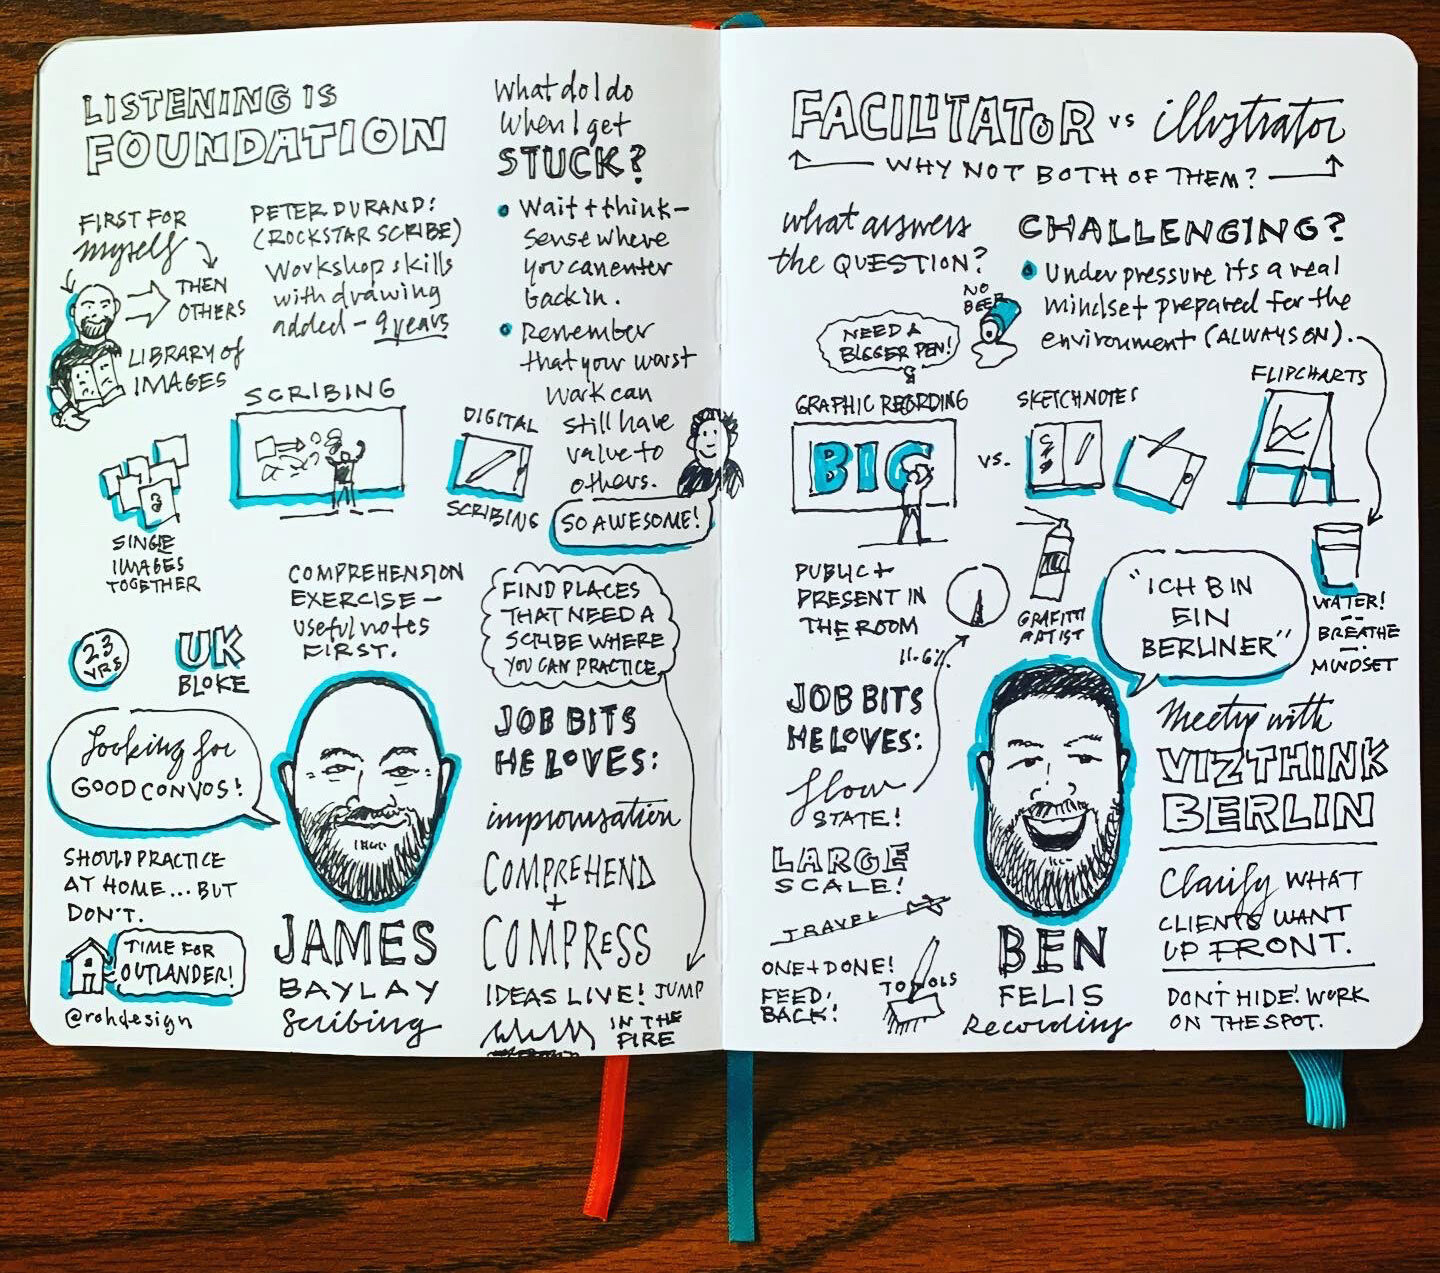 LISTENING IS
FOUNDATION
FIRST FOR
myself
THEN
OTHERS
LIBRARY of
IMAGES
PETER DURAND:
(ROCKSTAR SCRIBE)
Workshop skills
with drawing
added – 9 years
What do I do
When I get
STUCK?
• Wait + think –
sense where
you can enter
back in.
• Remember
that your worst
work can
still have
value to
others.
SO AWESOME!
SCRIBING
DIGITAL
SCRIBING
SINGLE
IMAGES
TOGETHER
COMPREHENSION
EXERCISE –
useful notes
FIRST.
FIND PLACES
THAT NEED A
SCRIBE WHERE
YOU CAN PRACTICE
23
YRS
UK
BLOKE
Looking for
GOOD CONVOS!
SHOULD PRACTICE
AT HOME... BUT
DON'T.
TIME FOR
OUTLANDER!
@rohdesign
JAMES
BAYLAY
Scribing
JOB BITS
HE LOVES:
improvisation
COMPREHEND
+
COMPRESS
IDEAS LIVE!
JUMP
IN THE
FIRE
FACILITATOR vs illustrator
WHY NOT BOTH OF THEM?
what answers
the QUESTION?
NO
BEER
NEED A
BIGGER PEN!
CHALLENGING?
• Under pressure its a real
mindset prepared for the
environment (ALWAYS ON).
GRAPHIC RECORDING
BIG
vs.
SKETCHNOTES
FLIPCHARTS
PUBLIC +
PRESENT IN
THE ROOM
11.6%.
GRAFITTI
ARTIST
"ICH BIN
EIN
BERLINER"
WATER!
BREATHE
MINDSET
JOB BITS
HE LOVES:
flow
STATE!
LARGE
SCALE!
TRAVEL
ONE + DONE!
FEED,
BACK!
TOOLS
BEN
FELIS
Recording
Meetup with
VIZTHINK
BERLIN
Clarify WHAT
CLIENTS WANT
UP FRONT.
DON'T HIDE! WORK
ON THE SPOT.